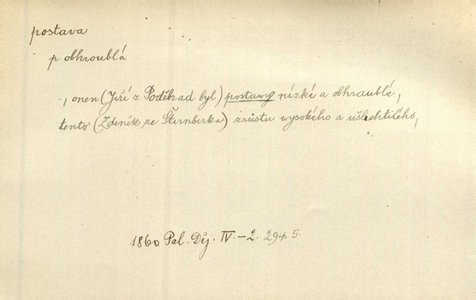 postava
p. obhroublá
-, onen (Jiří z Poděbrad byl) postavy nízké a obhroublé,
tento (Zdeněk ze Šternberka) zrůstu vysokého a ušlechtilého,
1860 Pal. Děj. IV.-2. 294